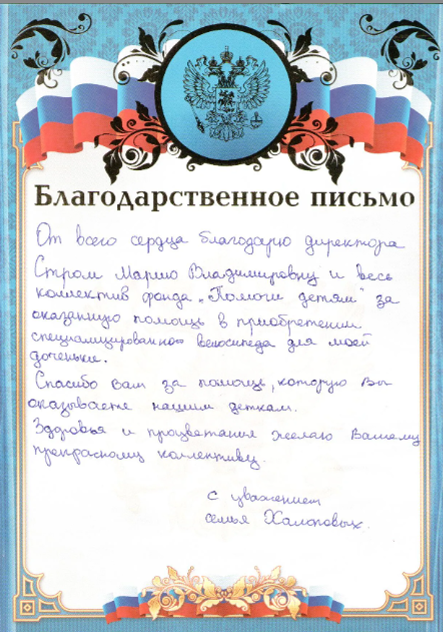 Благодарственное письмо
От всего сердца благодарю директора
Стром Марию Владимировну и весь
коллектив фонда „Помоги детям" за
оказанную помощь в приобретении
специализированного велосипеда для моей
доченьки.
Спасибо вам за помощь, которую Вы
оказываете нашим деткам.
Здоровья и процветания желаю Вашему
прекрасному коллективу.
с уважением
семья Халоповых.